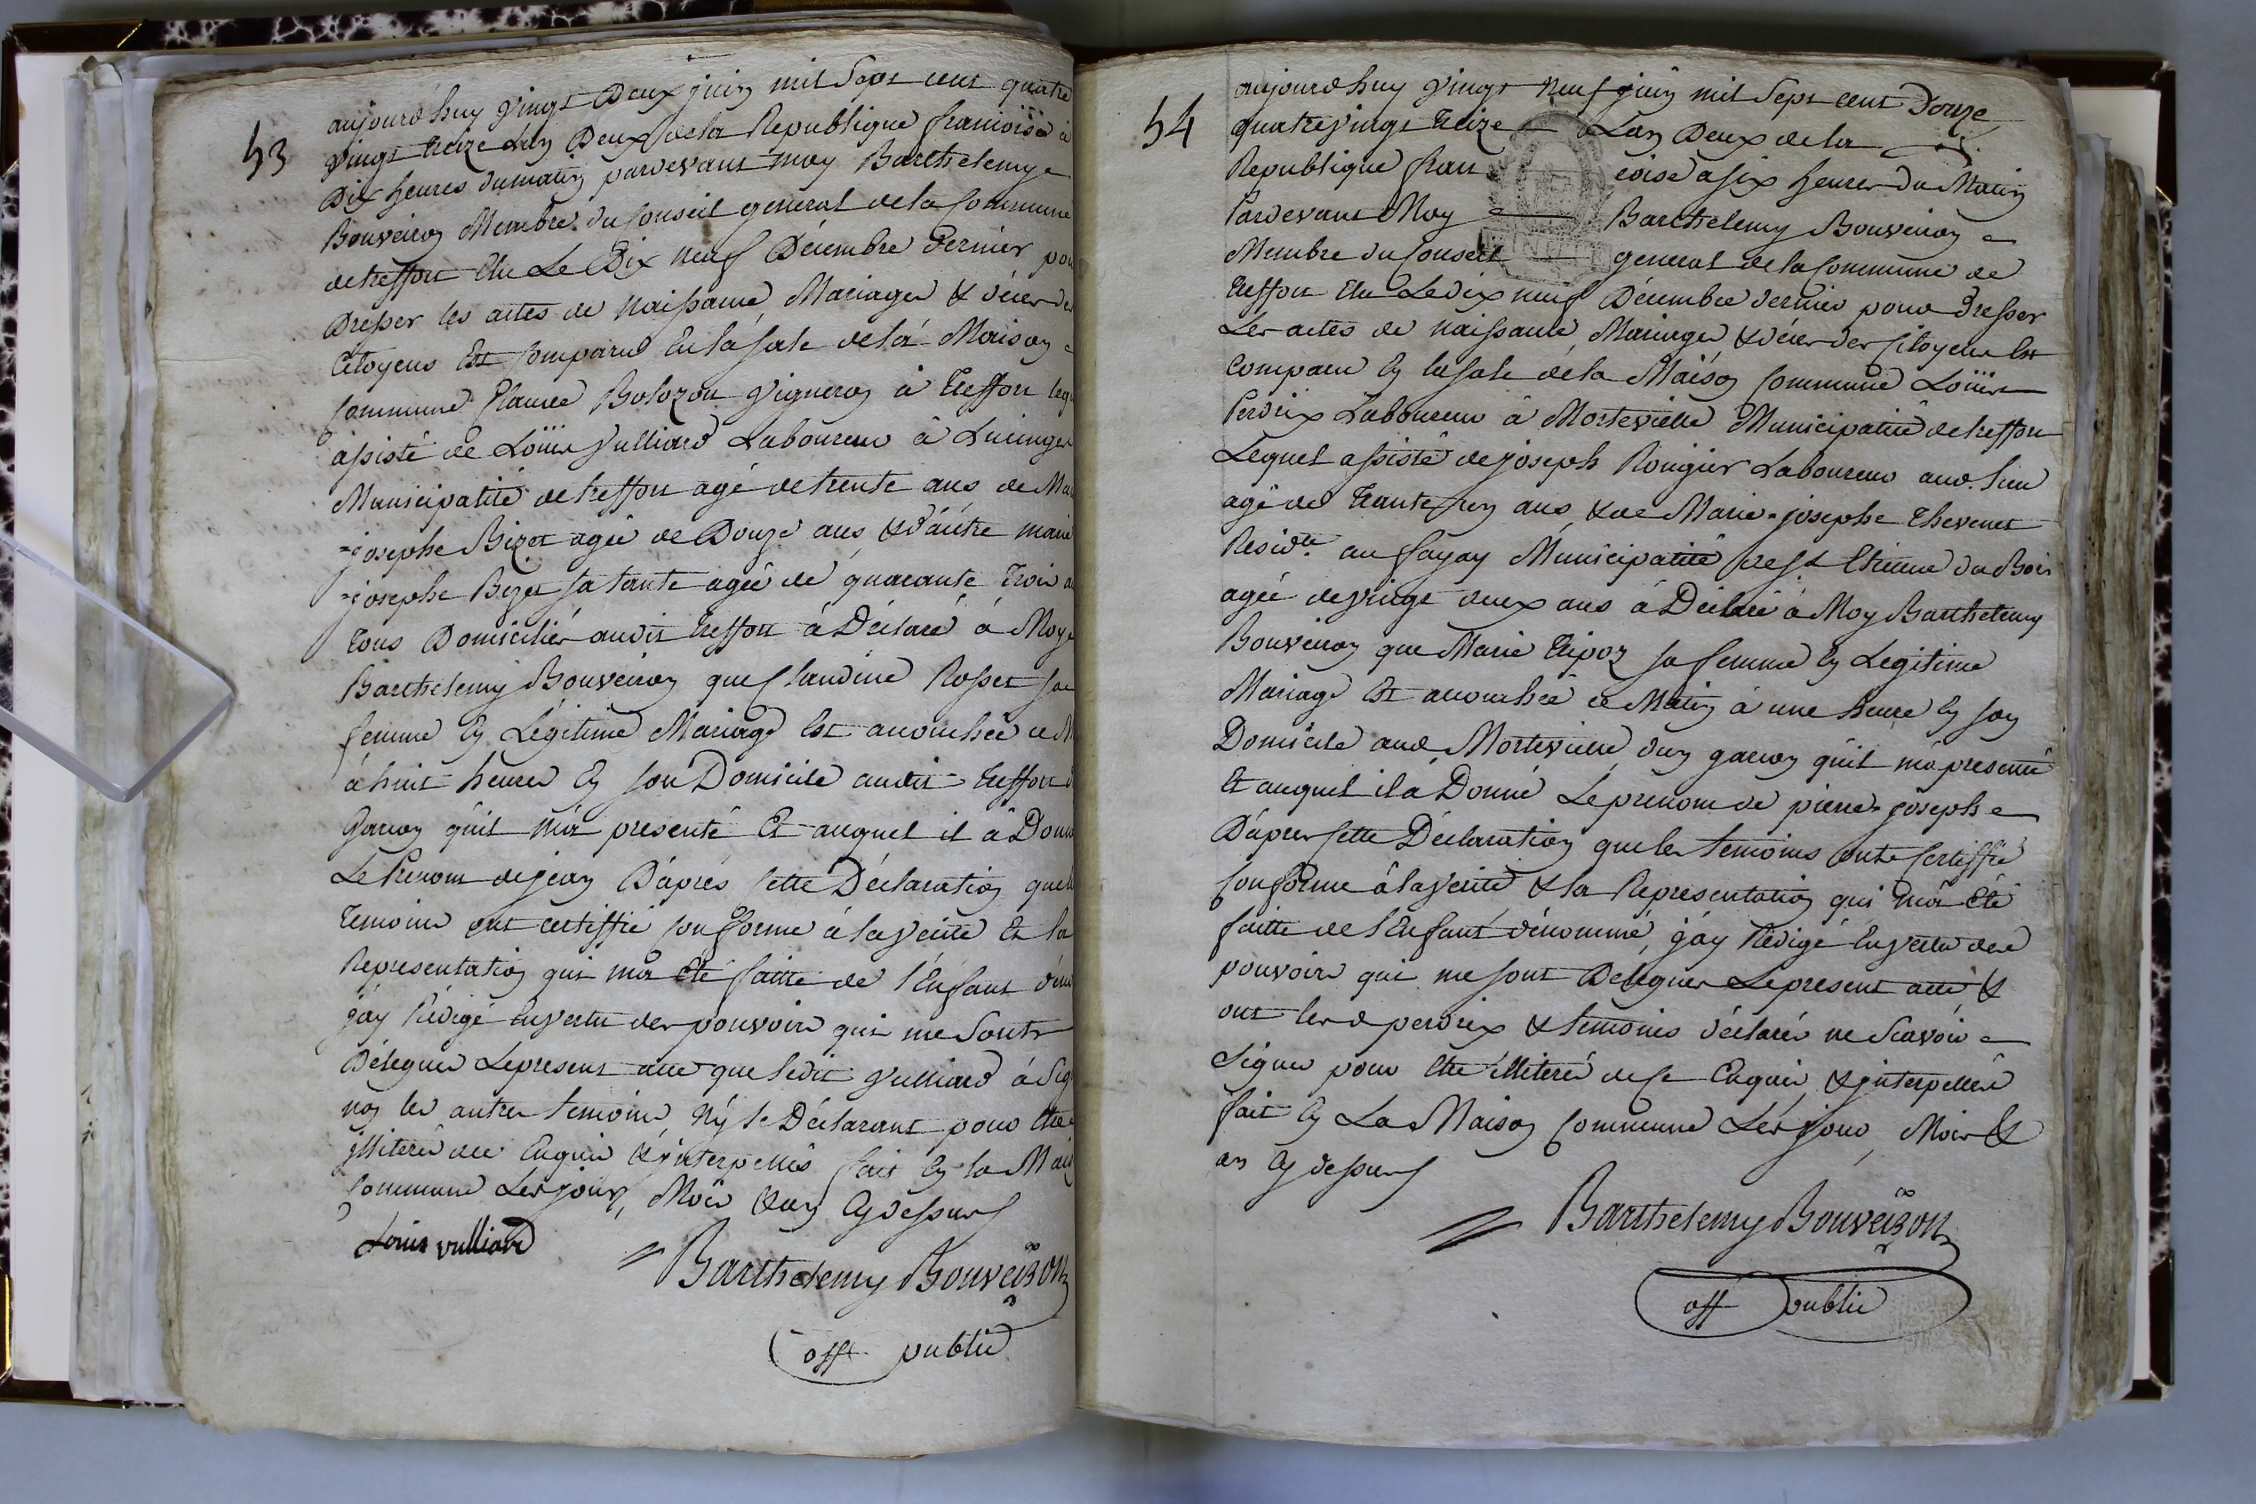 53
aujourd'huy vingt Deux juin mil Sept cent quatre
vingt treize L'an Deux de la Republique francoise à
Dix heures du matin pardevant moy Barthelemy
Bouveiron Membre du Conseil general de la Commune
de treffort Elu Le Dix neuf Décembre Dernier pou
Dresser les actes de naissance, Mariages & décès des
Citoyens Est Comparu En la sale de la Maison
Commune Claude Bolozon Vigneron à Treffort leq
assisté de Loüis Vulliard Laboureur à Lucinges
Municipalité de treffort agé de trente ans de Ma
=josephe Bizet agée de Douze ans & d'autre marie
=josephe Bizet sa tante agée de quarante trois a
tous Domiciliés audit treffort à Déclaré à Moy
Barthelemy Bouveiron que Claudine Rosset sa
femme En Légitime Mariage Est accouchée ce M
à huit heures En son Domicile audit treffort d
Garcon qu'il m'a presenté Et auquel il à Donn
Le Prenom de jean D'après Cette Déclaration que le
temoins ont certiffié Conforme à la verité Et la
Representation qui m'a Eté faitte de l'Enfant déno
j'ay Rédigé En vertu des pouvoirs qui me Sont
Délegués Le present acte que ledit Vulliard à Sig
non les autres temoins, Ny le Déclarant pour être
jlliterés de ce Enquis & interpellés fait En la Mais
Commune Les jour, Mois & an Cy dessus
Louis vulliard
Barthelemy Bouveiron
off public
54
aujourd'huy vingt neuf juin mil Sept cent Douze
quatrevingt treize L'an Deux de la
Republique francoise a six heures du Matin
Pardevant Moy Barthelemy Bouveiron
Membre du Conseil general de la Commune de
treffort Elu Le dix neuf Décembre dernier pour Dresser
Les actes de naissance, Mariage & décès des Citoyens Est
Comparu En la sale de la Maison Commune Loüis
Perdrix Laboureur à Mortevielle Municipalité de treffort
Lequel assisté de joseph Rougier Laboureur aud. lieu
agé de trante six ans & de Marie=josephe thevenet
Resid.te au fayay Municipalité de St Etienne du Bois
agée de vingt deux ans à Déclaré à Moy Barthelemy
Bouveiron que Marie Tripoz sa femme En Légitime
Mariage Est accouchée ce Matin à une heure En son
Domicile aud. Mortevielle d'un garcon qu'il m'a presenté
Et auquel il à Donné Le prenom de pierre=joseph
D'après Cette Déclaration que les temoins ont Certiffié
Conforme à la verité & la Representation qui m'a Eté
faitte de l'Enfant dénommé, j'ay Rédigé En vertu des
pouvoirs qui me sont Délegués Le present acte &
ont les d. perdrix & temoins déclarés ne Scavoir
Signer pour être illiterés de ce Enquis & interpellés
fait En La Maison Commune Les jour, Mois &
an Cy dessus
Barthelemy Bouveiron
off public